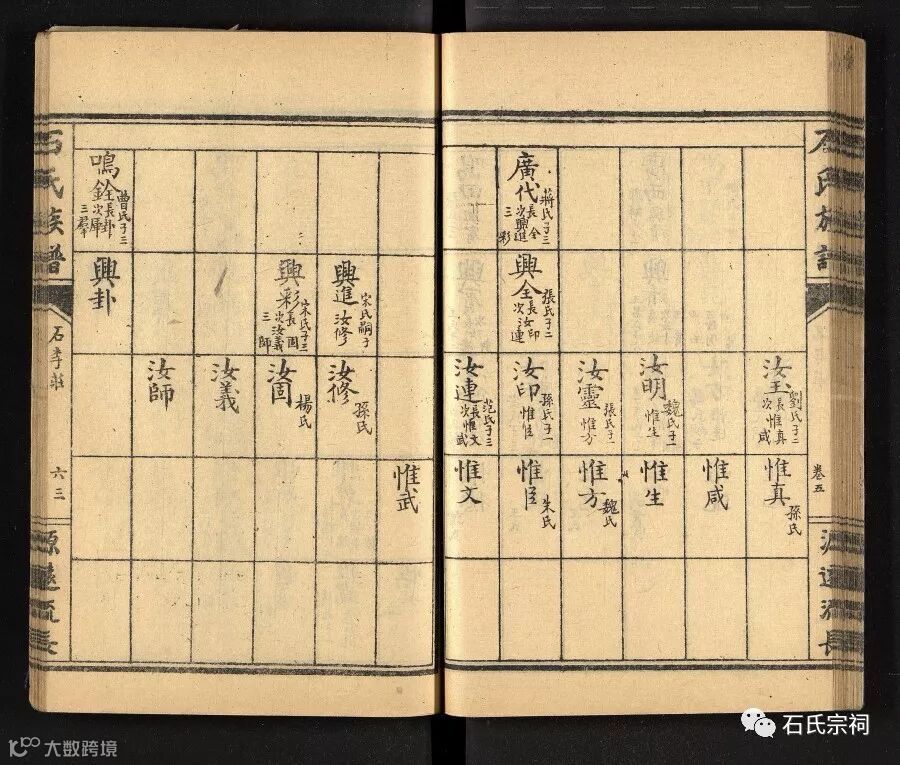 石氏族譜
卷五
源遠流長
汝玉 劉氏子二 長惟真 次惟咸
惟真 孫氏
惟咸
汝明 魏氏子一 惟生
惟生
汝靈 張氏子一 惟方
惟方 魏氏
廣代 蔣氏子三 長全 次興進 三彩
興全 張氏子二 長汝印 次汝連
汝印 孫氏子一 惟臣
惟臣 朱氏
汝連 范氏子二 長惟文 次武
惟文
惟武
興進 宋氏嗣子 汝修
汝修 孫氏
興彩 宋氏子三 長固 次汝義 三師
汝固 楊氏
汝義
汝師
鳴銓 曹氏子三 長卦 三群
興卦
石氏族譜
石李莊
六三
源遠流長
石氏宗祠
大数跨境